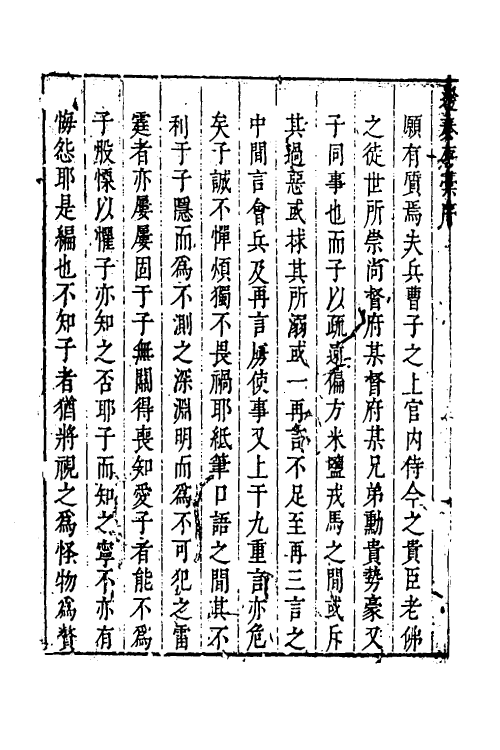 願有質焉夫兵曹子之上官内侍今之貴臣老佛
之徒世所崇尚督府某督府某兄弟勳貴勢豪又
子同事也而子以疏遠偏方米鹽戎馬之間或斥
其過惡或捄其所溺或一再言不足至再三言之
中間言會兵及再言虜使事又上干九重言亦危
矣子誠不憚煩獨不畏禍耶紙筆口語之間其不
利于子隱而爲不測之深淵明而爲不可犯之雷
霆者亦屢屢固于子無關得喪知愛子者能不爲
子股慄以懼子亦知之否耶子而知之寧不亦有
悔怨耶是編也不知子者猶將視之爲怪物爲贅